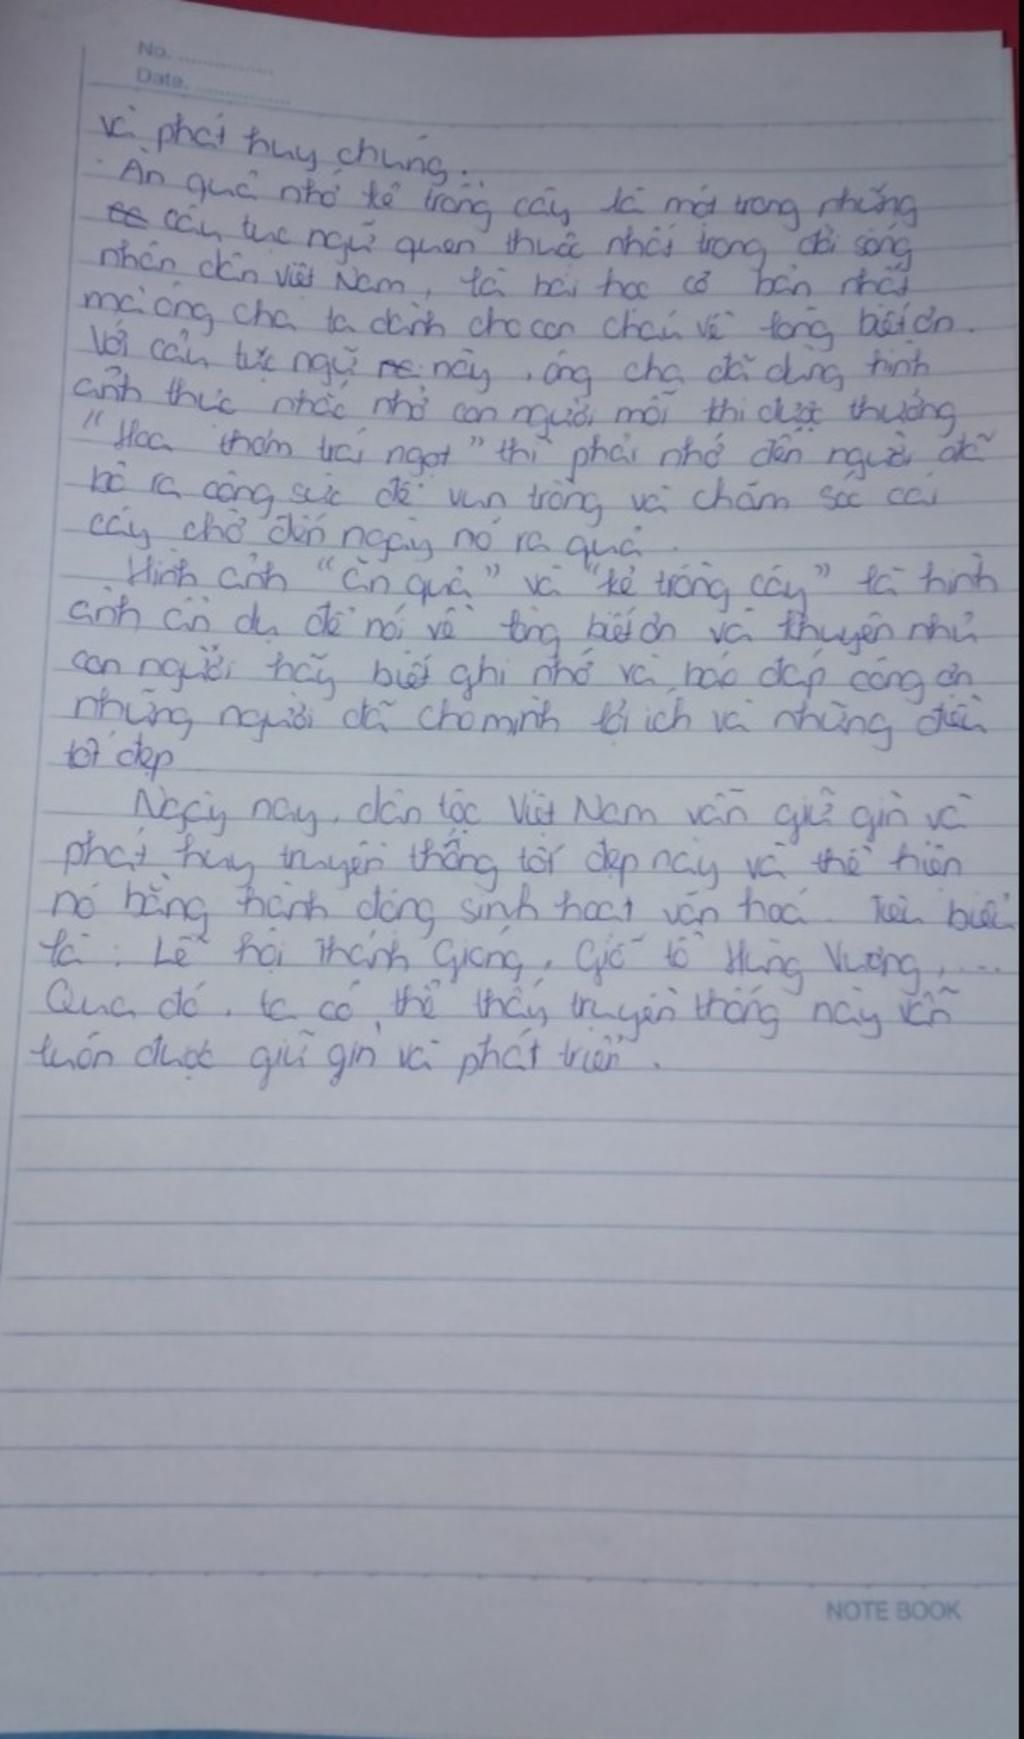 No. ..............
Date. ..............
và phát huy chúng.
Ăn quả nhớ kẻ trồng cây là một trong những
câu tục ngữ quen thuộc nhất trong đời sống
nhân dân Việt Nam, là bài học cơ bản nhất
mà ông cha ta dành cho con cháu về lòng biết ơn.
Với câu tục ngữ này, ông cha đã dùng hình
ảnh thực nhắc nhở con người mỗi khi được thưởng
"Hoa thơm trái ngọt" thì phải nhớ đến người đã
bỏ ra công sức để vun trồng và chăm sóc cái
cây chờ đến ngày nó ra quả.
Hình ảnh "ăn quả" và "kẻ trồng cây" là hình
ảnh ẩn dụ để nói về lòng biết ơn và khuyên nhủ
con người hãy biết ghi nhớ và báo đáp công ơn
những người đã cho mình lợi ích và những điều
tốt đẹp
Ngày nay, dân tộc Việt Nam vẫn giữ gìn và
phát huy truyền thống tốt đẹp này và thể hiện
nó bằng hành động sinh hoạt văn hoá. Tiêu biểu
là: Lễ hội Thánh Gióng, Giỗ tổ Hùng Vương,....
Qua đó, ta có thể thấy truyền thống này vẫn
luôn được giữ gìn và phát triển.
NOTE BOOK